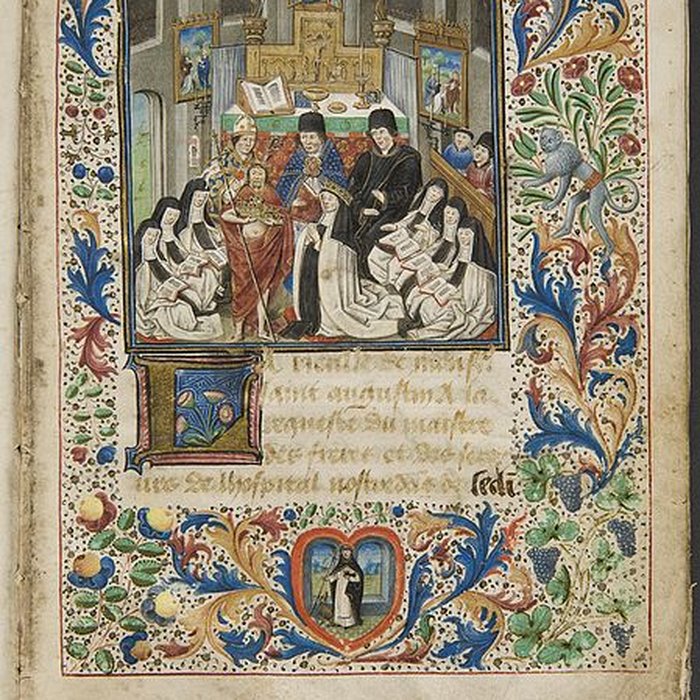 La rieulle de
saint augustin A la
requeste du maistre
des freres et des seu
urs de lhospital nostre